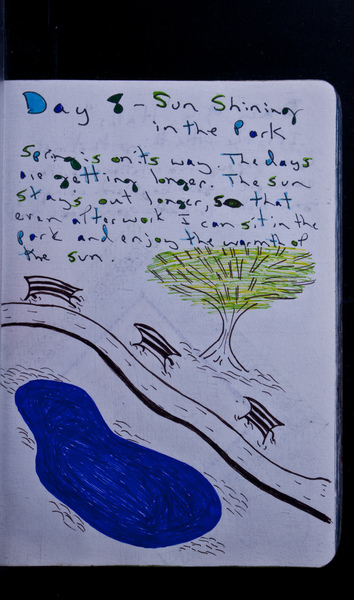 Day 8 - Sun Shining
in the Park
Spring is on its way. The days
are getting longer. The sun
stays out longer, so that
even after work I can sit in the
park and enjoy the warmth of
the sun.